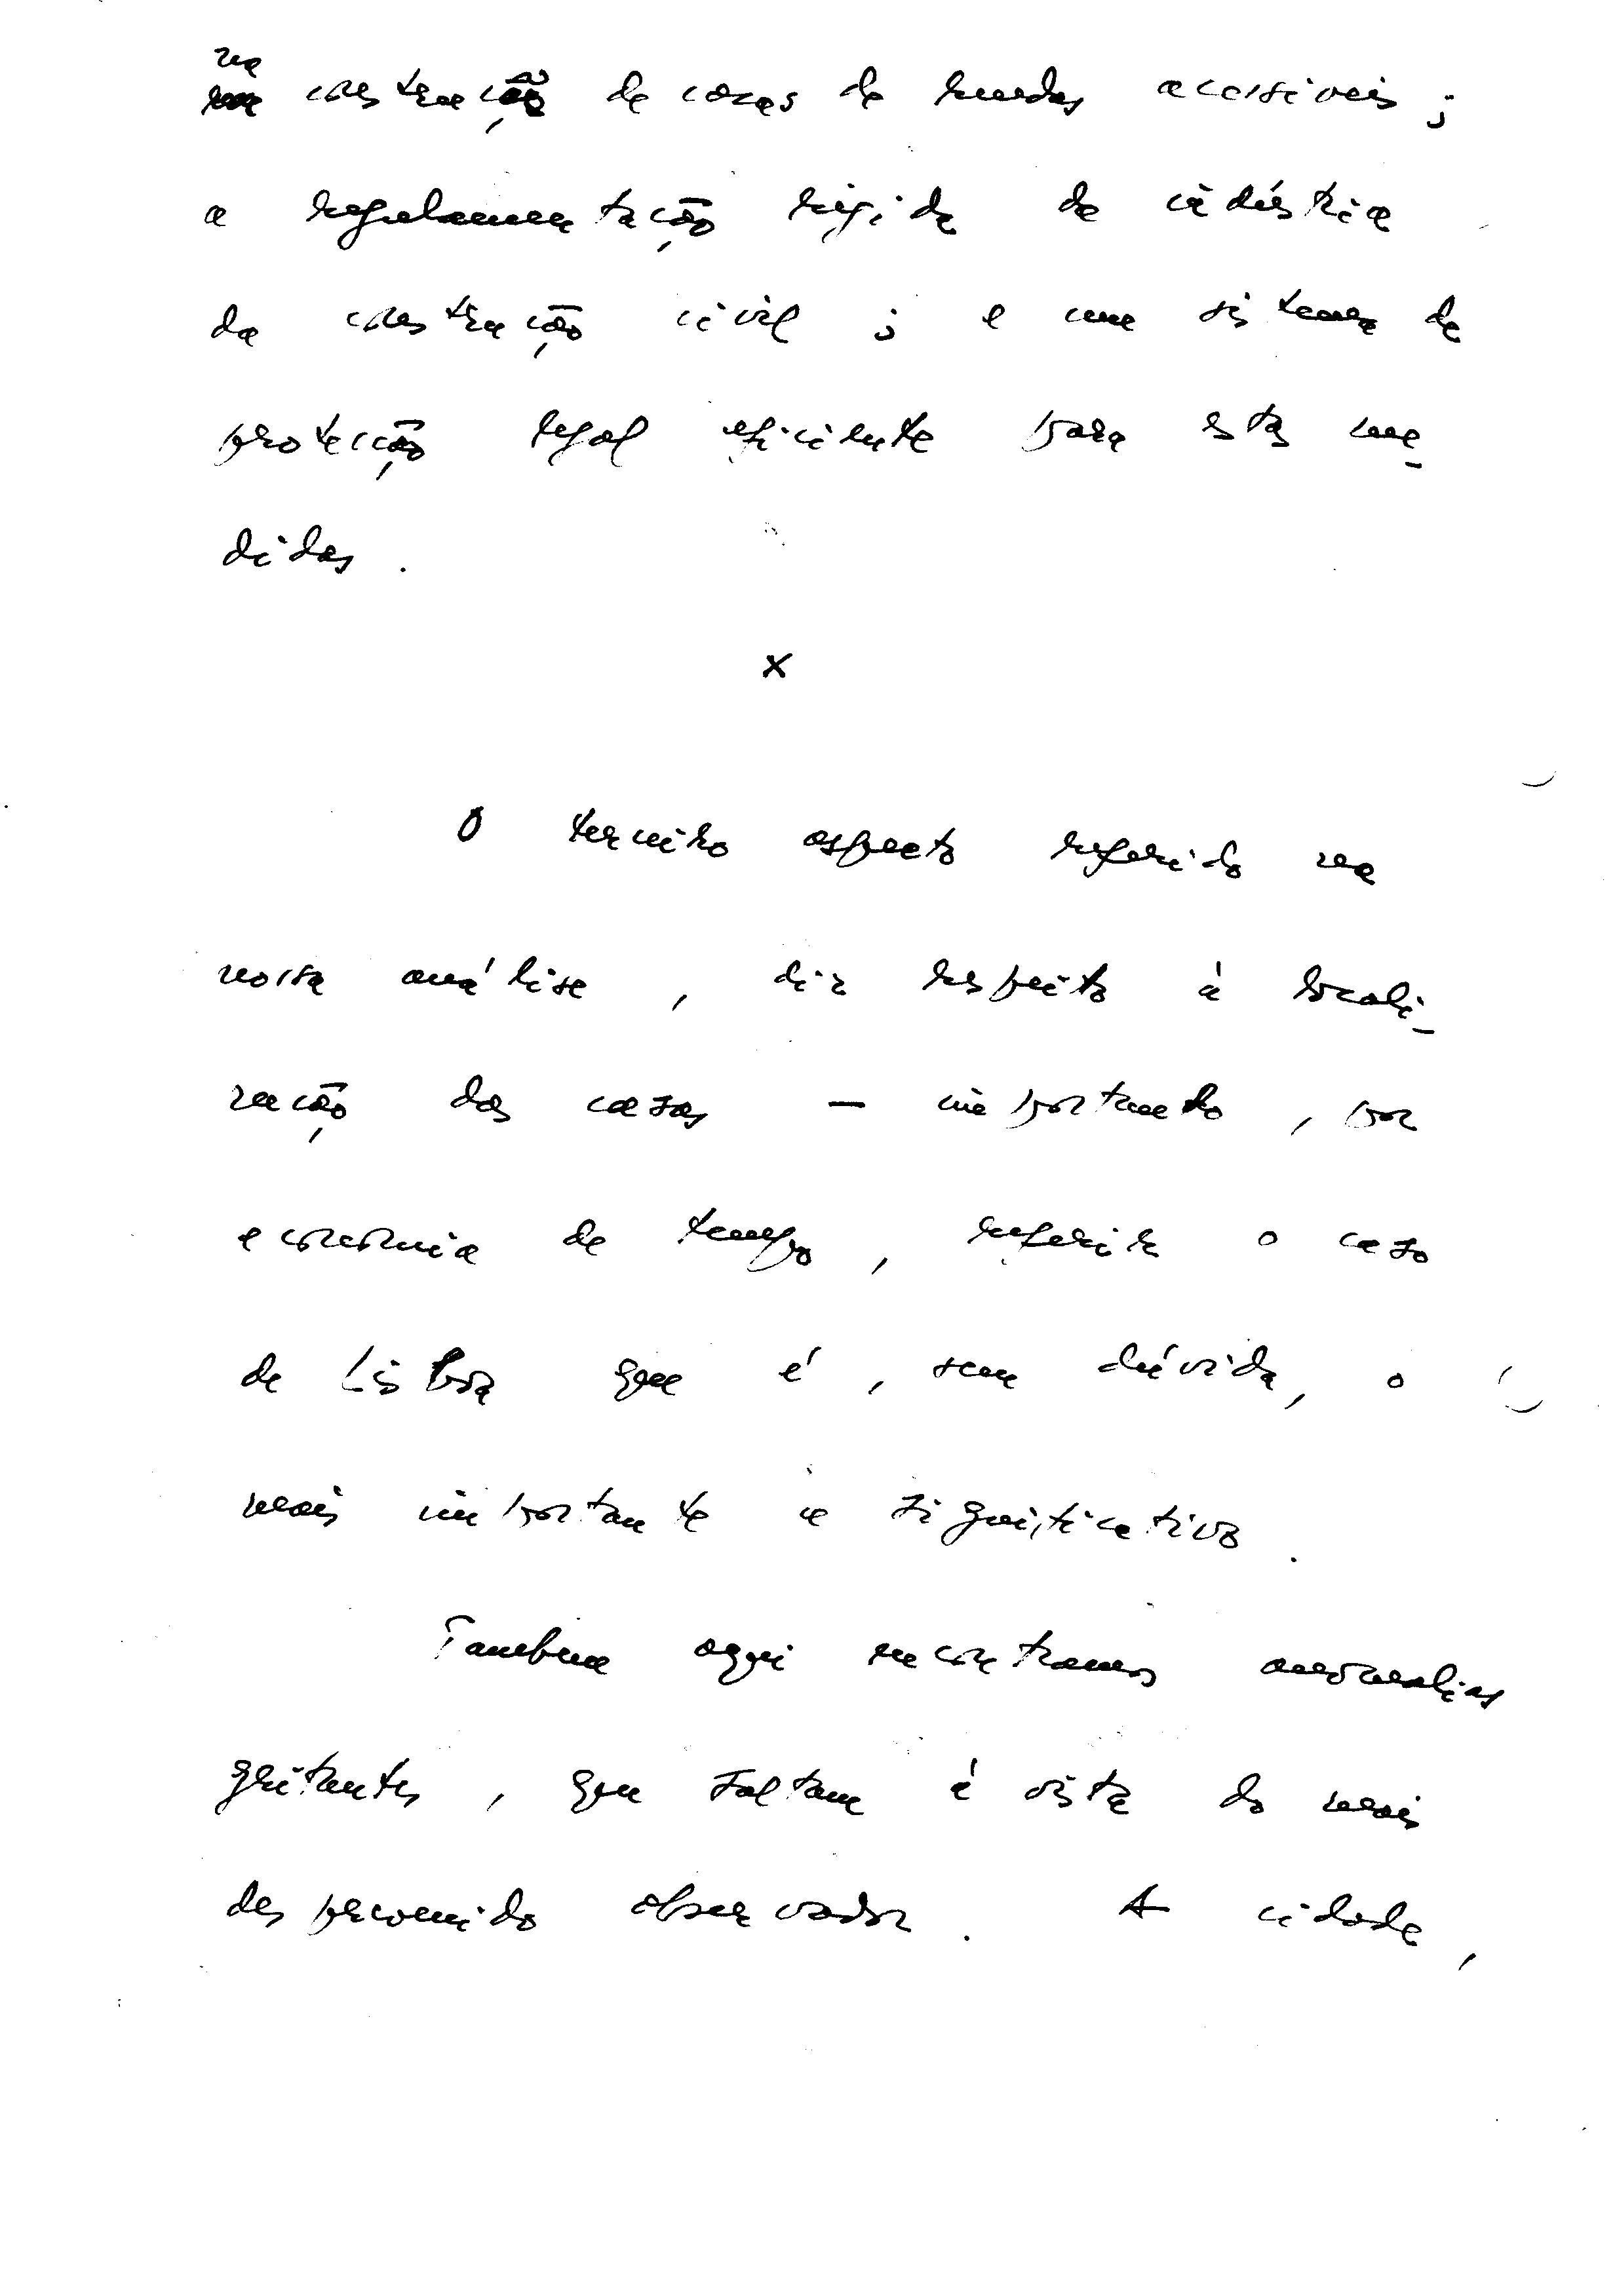 na
construção de casas de rendas acessíveis ;
a regulamentação rígida da indústria
da construção civil ; e um sistema de
protecção legal eficiente para estas me-
didas .
x
O terceiro aspecto referido na
nossa análise , diz respeito à locali-
zação das casas — importando , por
economia de tempo , referir o caso
de Lisboa que é , sem dúvida , o
mais importante e significativo .
Também aqui encontramos anomalias
gritantes , que saltam à vista do mais
desprevenido observador . A cidade ,